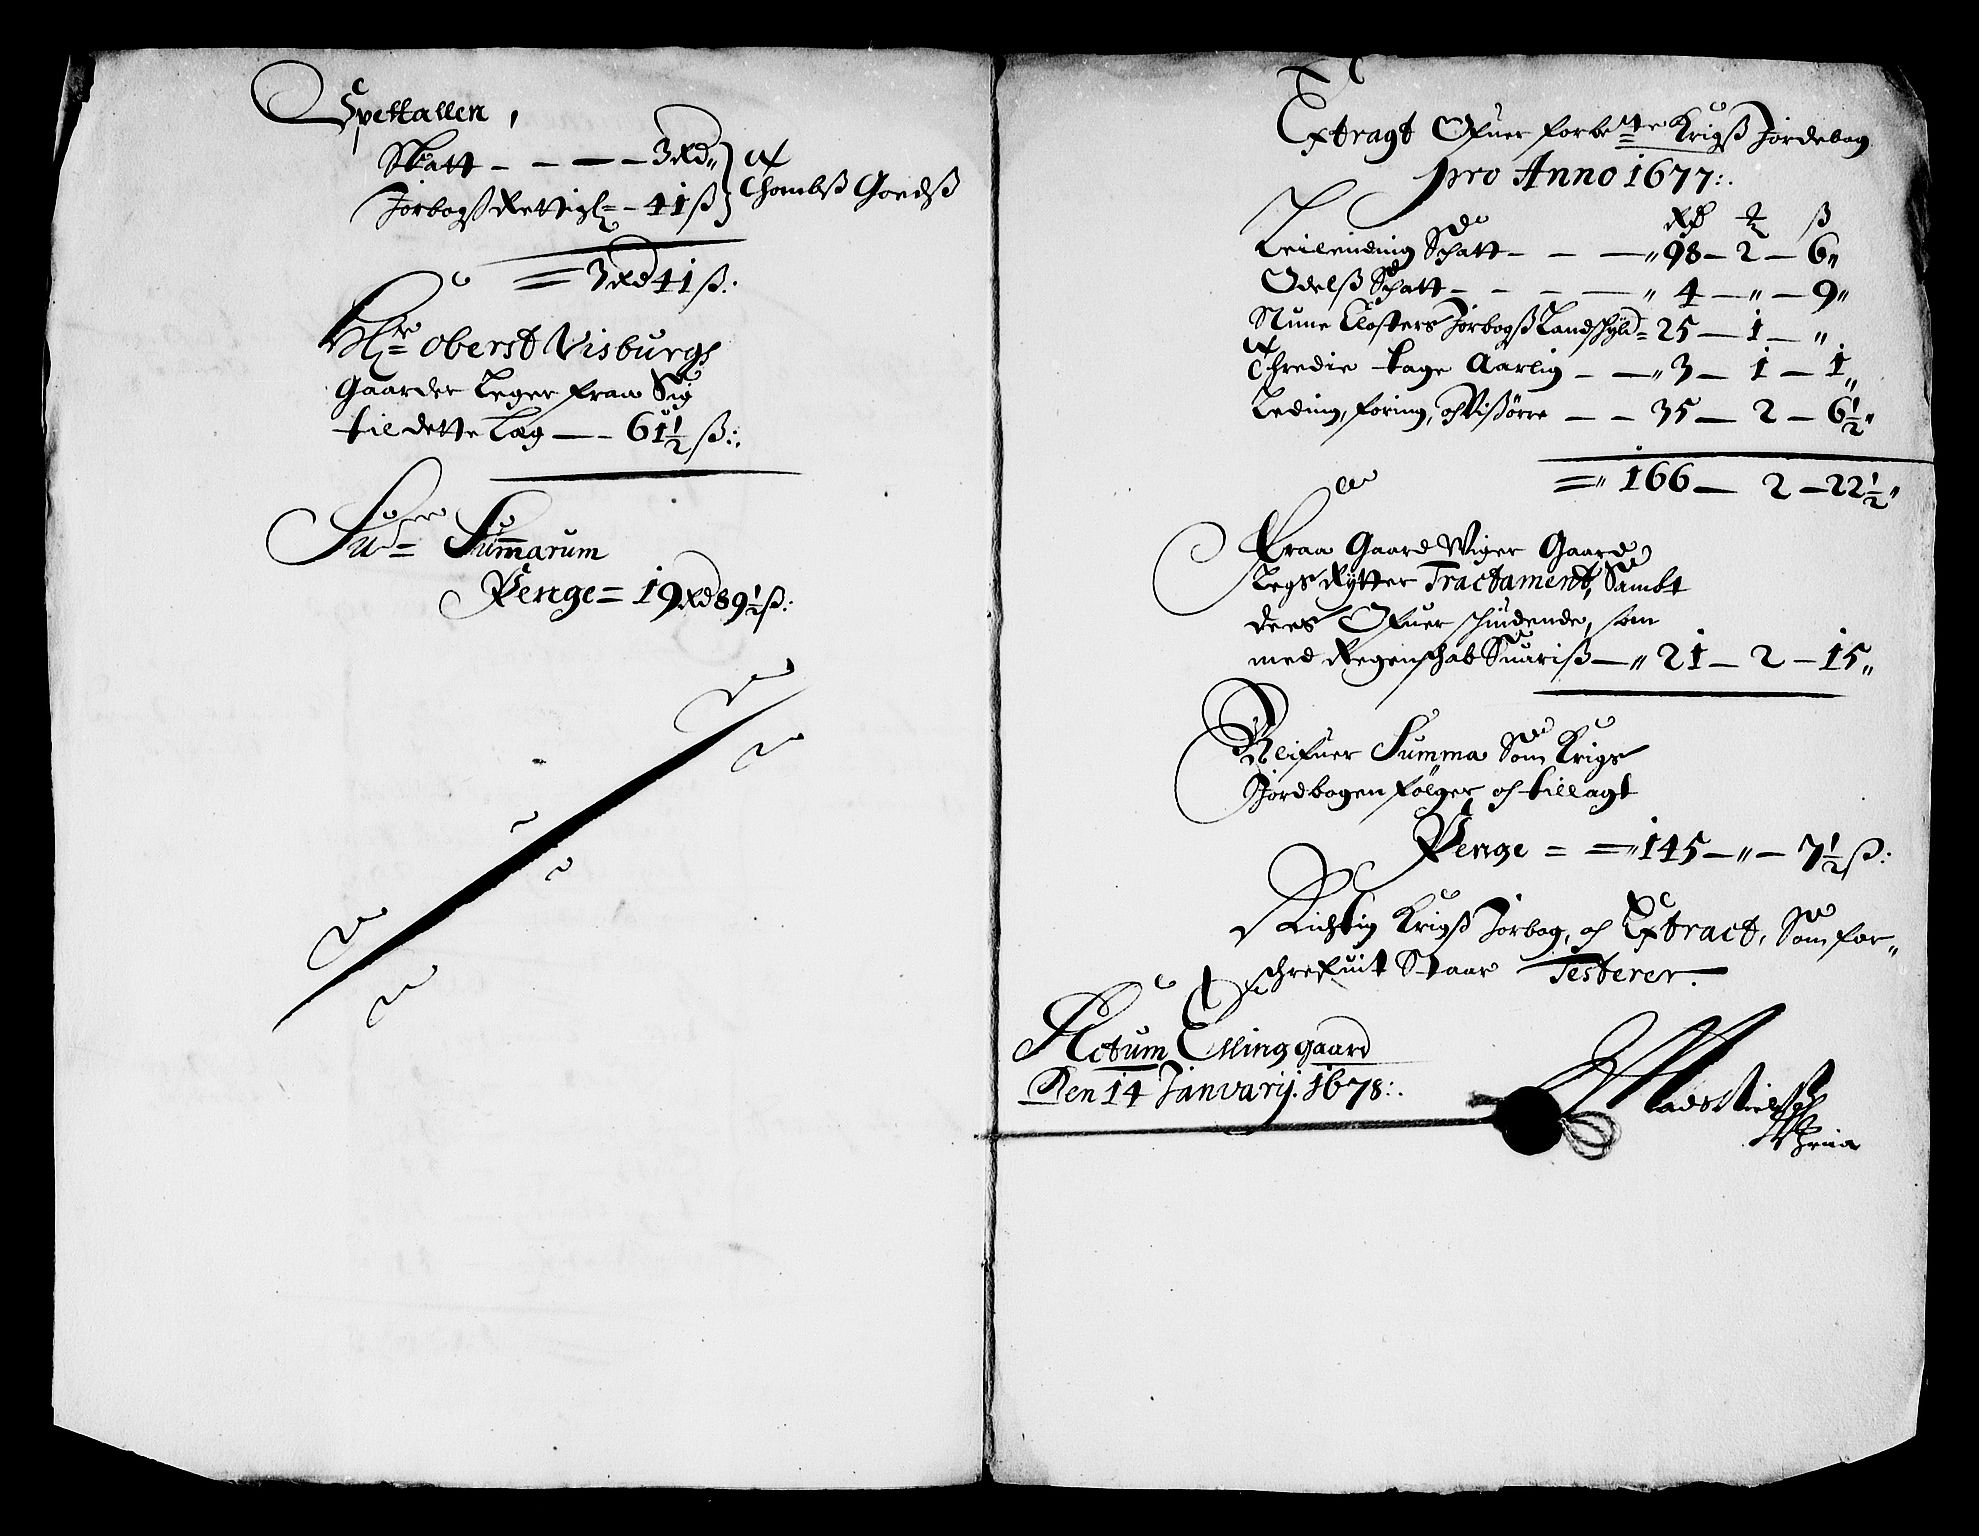 Spettallen,
Skatt — — — 3 Rd
Jorbogß Rettigh: — 41 ß } Thombß Goedß
= 3 Rd 41 ß:
Hr: Oberst Visburgs
Gaarder Leger fraa Sig
til dette Læg — 61½ ß:
Sumr: Summarum
Penge = 19 Rd 89½ ß:
Extragt Ofuer forbete Krigß Jordebog
pro Anno 1677:
Rd ß
Leilending Schatt — — — 98 — 2 — 6
Odelß Schatt — — — — 4 — " — 9
Nune Closters Jorbogß Landschyld = 25 — 1 — "
Thredie tage Aarlig — — 3 — 1 — 1
Leding, foring, och Vißørre — — 35 — 2 — 6½
= 166 — 2 — 22½
Fraa Gaard Wiger Gaard
Legs Rytter Tractament, Sambt
dees Ofuer schüdende, som
med Regenschab Suariß — 21 — 2 — 15
Blifuer Summa Som Krigs
Jordbogen følger och tillagt
Penge = = 145 — " — 7½ ß:
Richtig Krigß Jorbog, och Extract, Som for-
schrefuit Staar Testerer.
Actum Ellinggaard
Den 14 Januarij. 1678:
Mads